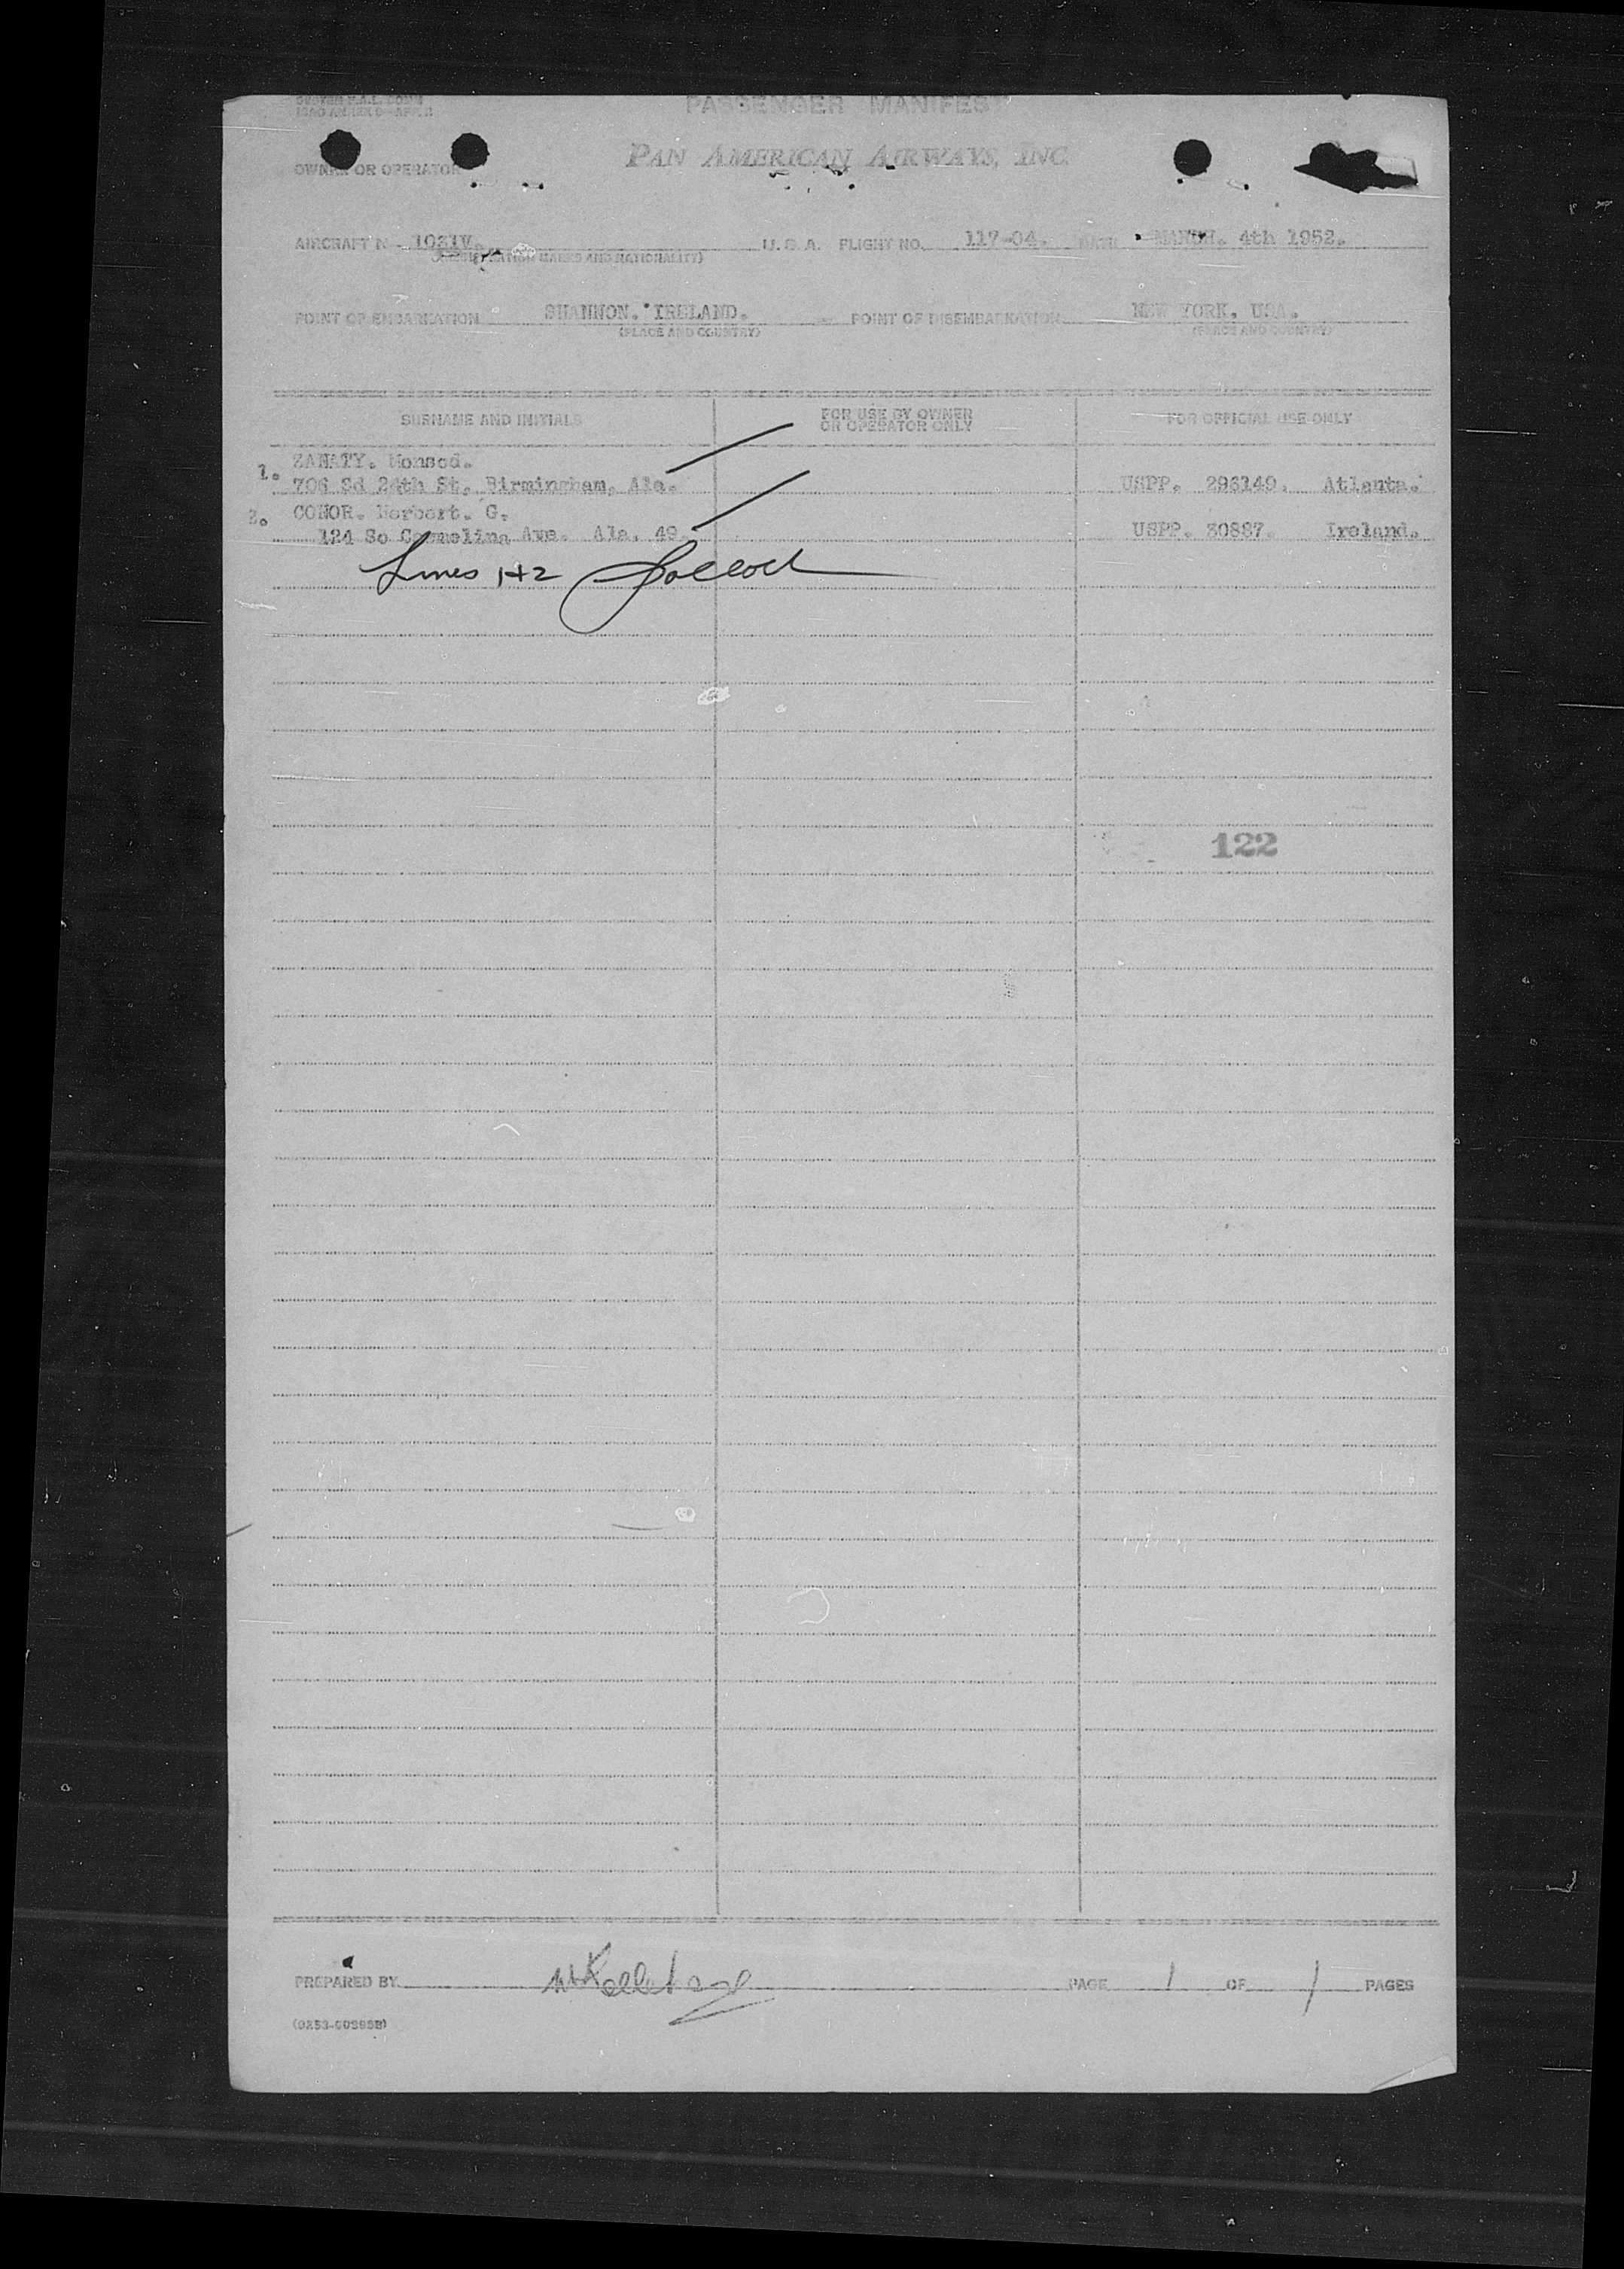 PASSENGER MANIFEST
OWNER OR OPERATOR PAN AMERICAN AIRWAYS, INC
AIRCRAFT N U. S. A. FLIGHT NO. 117-04. DATE MARCH. 4th 1952.
(REGISTRATION MARKS AND NATIONALITY)
POINT OF EMBARKATION SHANNON. IRELAND. POINT OF DISEMBARKATION NEW YORK. USA.
(PLACE AND COUNTRY) (PLACE AND COUNTRY)
SURNAME AND INITIALS FOR USE BY OWNER OR OPERATOR ONLY FOR OFFICIAL USE ONLY
1. ZANATY.
706 24th St, Birmingham, Ala. USPP. 296149. Atlanta.
2. CONOR. G.
124 So Ave. Ala. 49. USPP. 30887. Ireland.
Lines 1+2
122
PREPARED BY PAGE 1 OF 1 PAGES